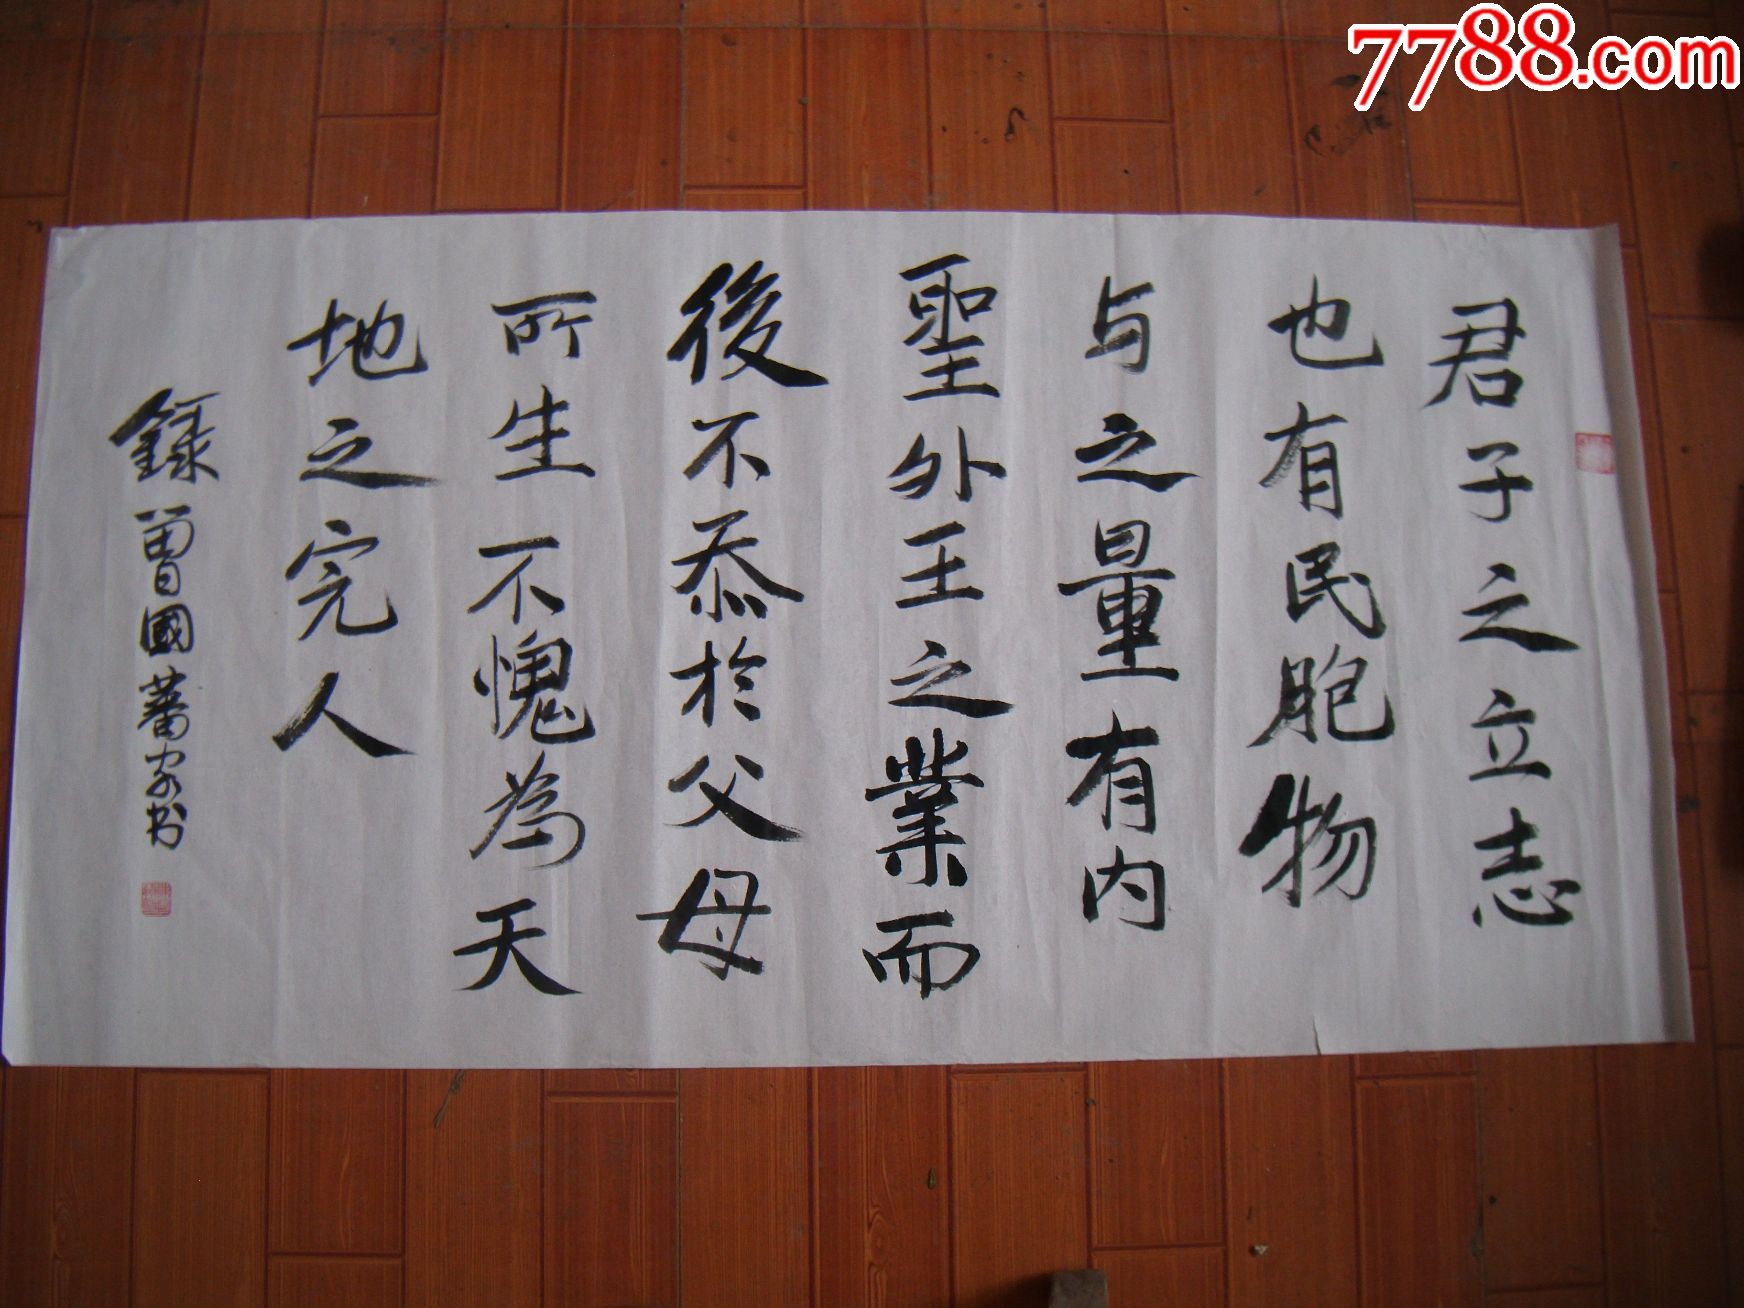 君子之立志
也有民胞物
与之量有内
聖外王之業而
後不忝於父母
所生不愧為天
地之完人
録曾國蕃家书
7788.com